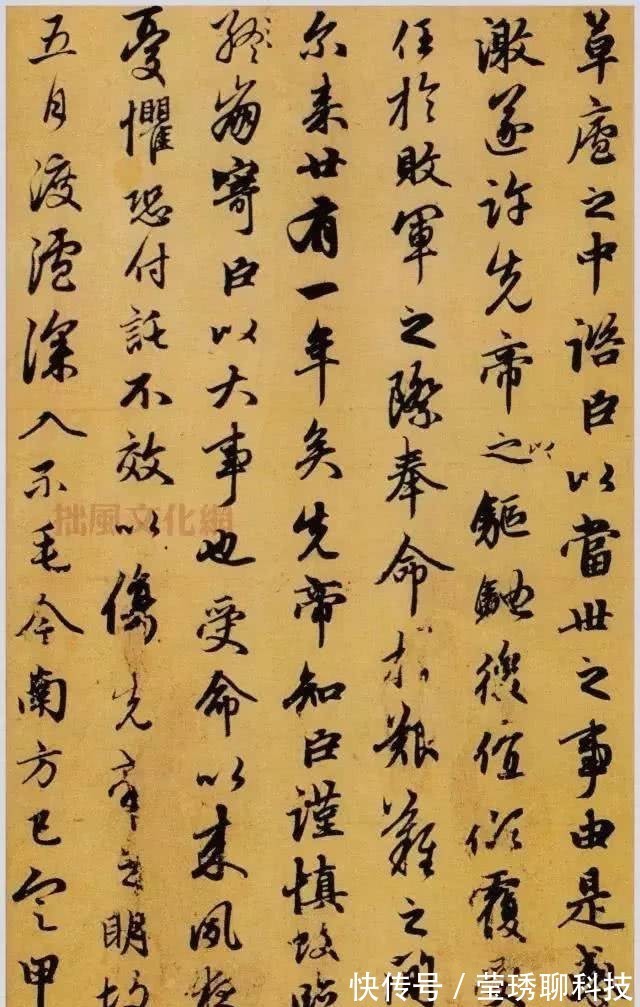 草廬之中諮臣以當世之事由是感
激遂許先帝之以驅馳後值傾覆
任於敗軍之際奉命於艱難之
尔来廿有一年矣先帝知臣謹慎故臨
終崩寄臣以大事也受命以来夙夜
憂懼恐付託不效以傷先帝之明故
五月渡瀘深入不毛今南方已定甲
拙風文化網
快传号 / 莹琇聊科技